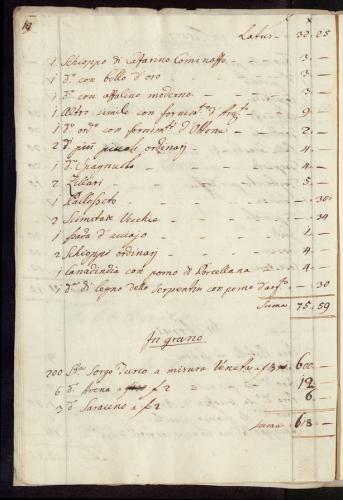 19
f x
Latus 32. 25
1 Schioppo di Caffarino Cominaffo 3. —
1 d.º con bollo d'oro 3. —
1 d.º con affalino moderno 3. —
1 Altro simile con fornim.ti d'Arg.to 9 —
1 d.º ord.º con fornim.ti d'Ottone 2. —
2 d.i più piccoli ordinarj 4. —
1 d.º Spagnuolo 4. —
2 Zillari 5. —
1 Pallossetto —. 30
2 Sumitate Vecchie —. 34
1 spada d'acciajo 1. —
2 Schioppi ordinarj 4. —
1 Canadindia con pomo di Porcellana 4. —
1 d.ª di legno dello Serpentin con pomo d'arg.to —. 30
Suma 75. 59
In grano
200 St.ra Sorgo Turco a misura Veneta a f 3 600. —
6 d.i Avena a f 2 12 —
3 d.i Saraceno a f 2 6. —
Suma 618. —